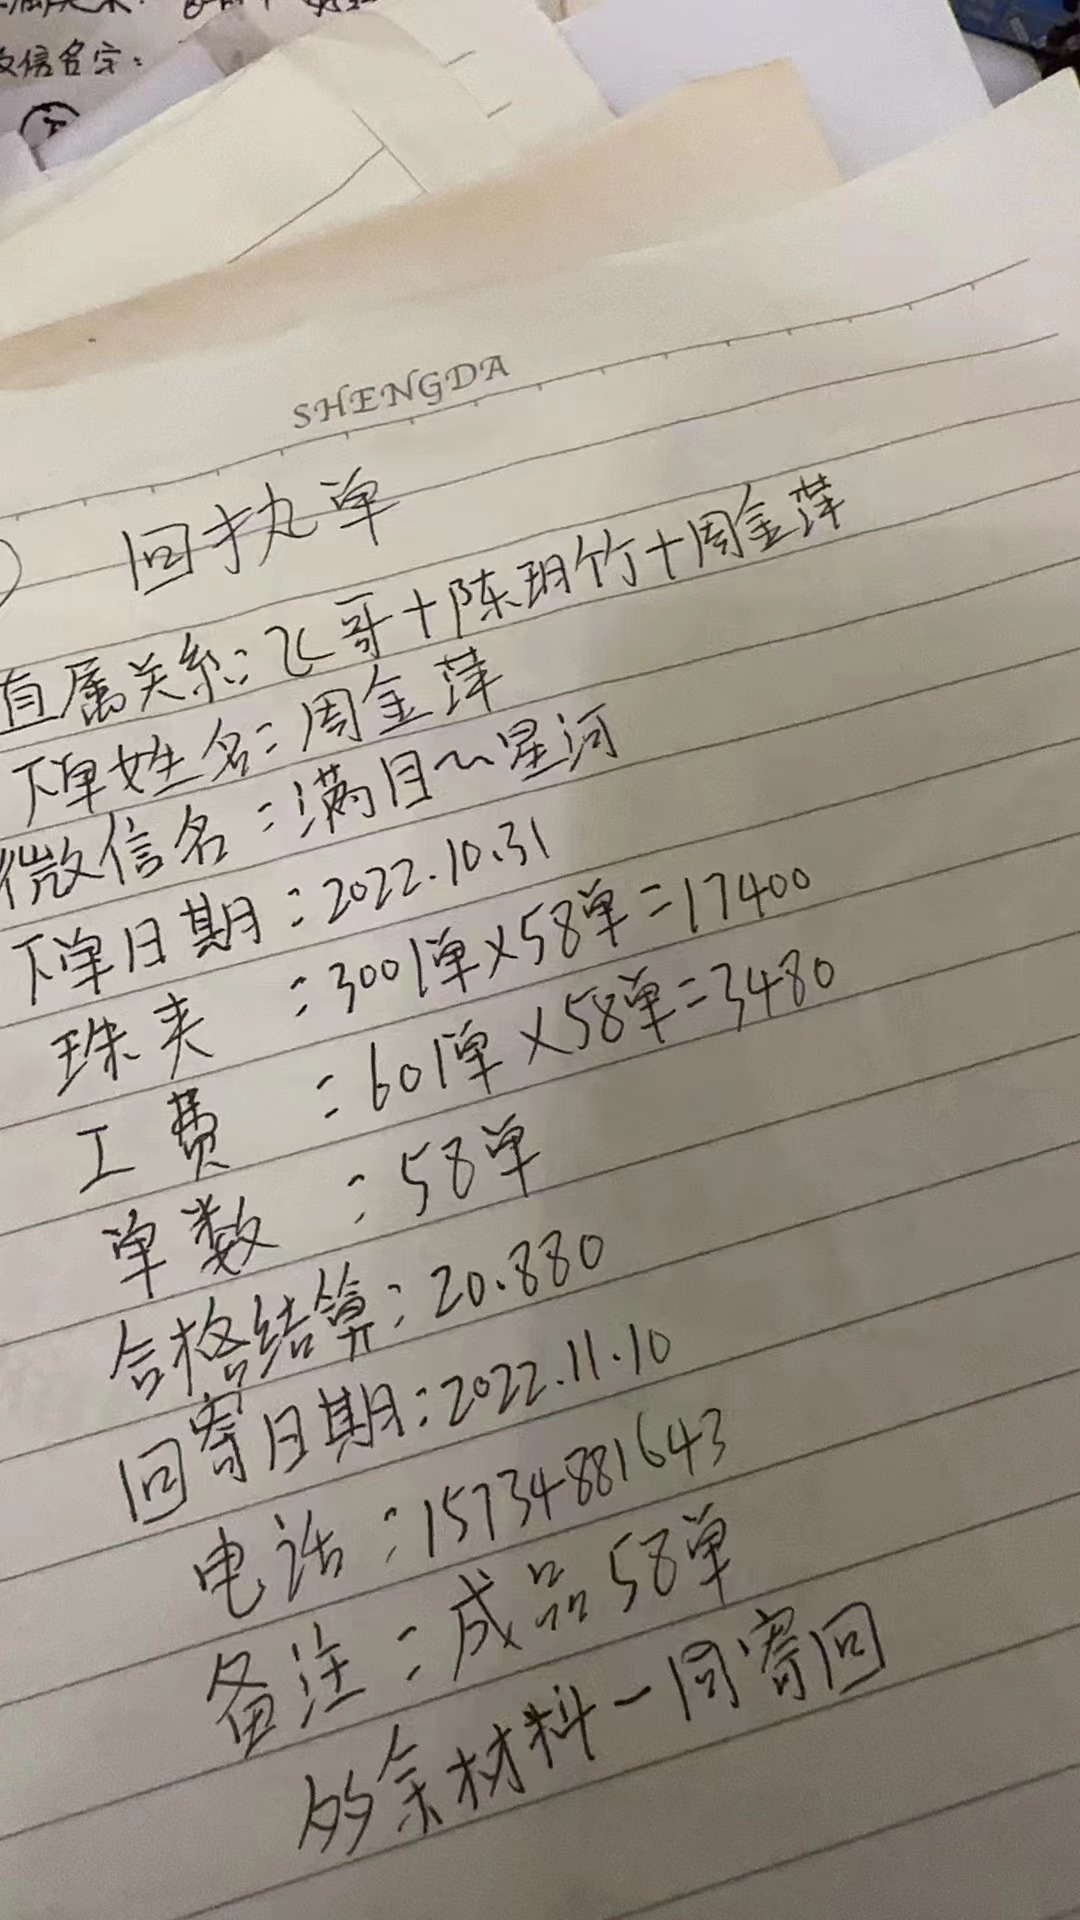 微信名字：
SHENGDA
回执单
直属关系：飞哥+陈玥竹+周金萍
下单姓名：周金萍
微信名：满目~星河
下单日期：2022.10.31
珠夹：300/单×58单=17400
工费：60/单×58单=3480
单数：58单
合格结算：20.880
回寄日期：2022.11.10
电话：15734881643
备注：成品58单
多余材料一同寄回